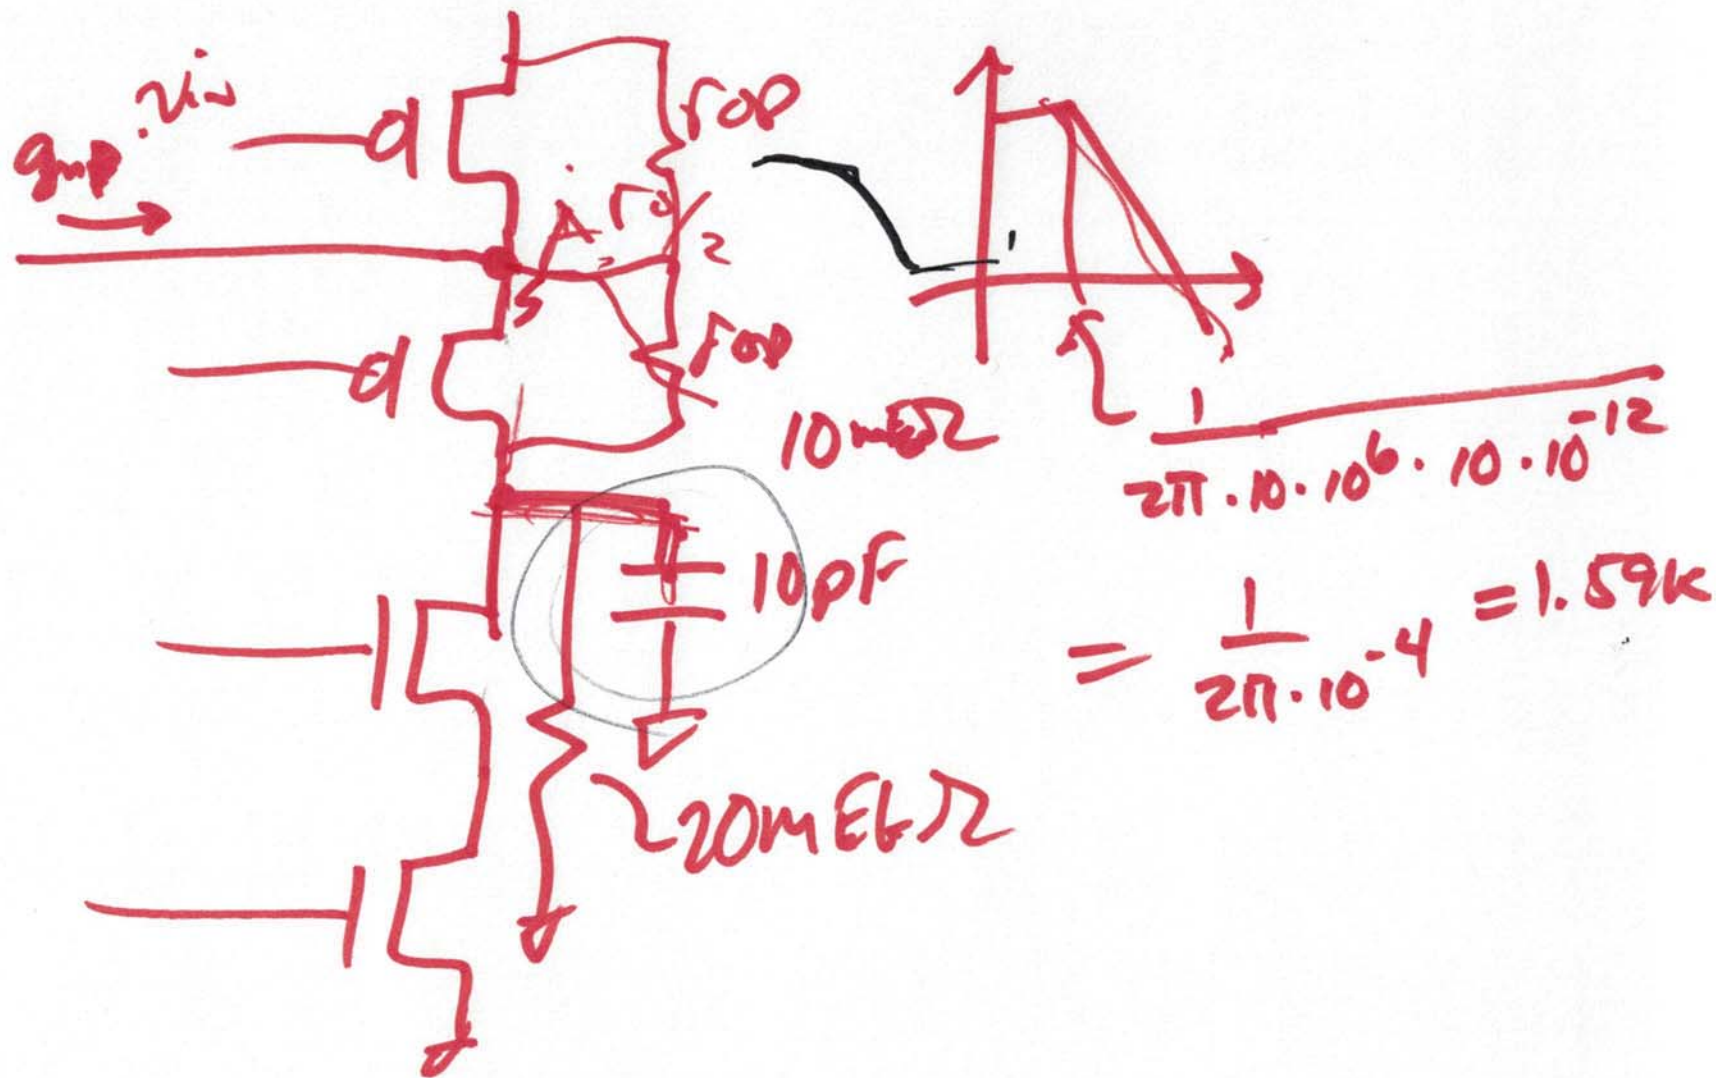 gmp · vin
rop
rop
10mEGΩ
10pF
20mEGΩ
1
2π · 10 · 10⁶ · 10 · 10⁻¹²
= 1
2π · 10⁻⁴
= 1.59k